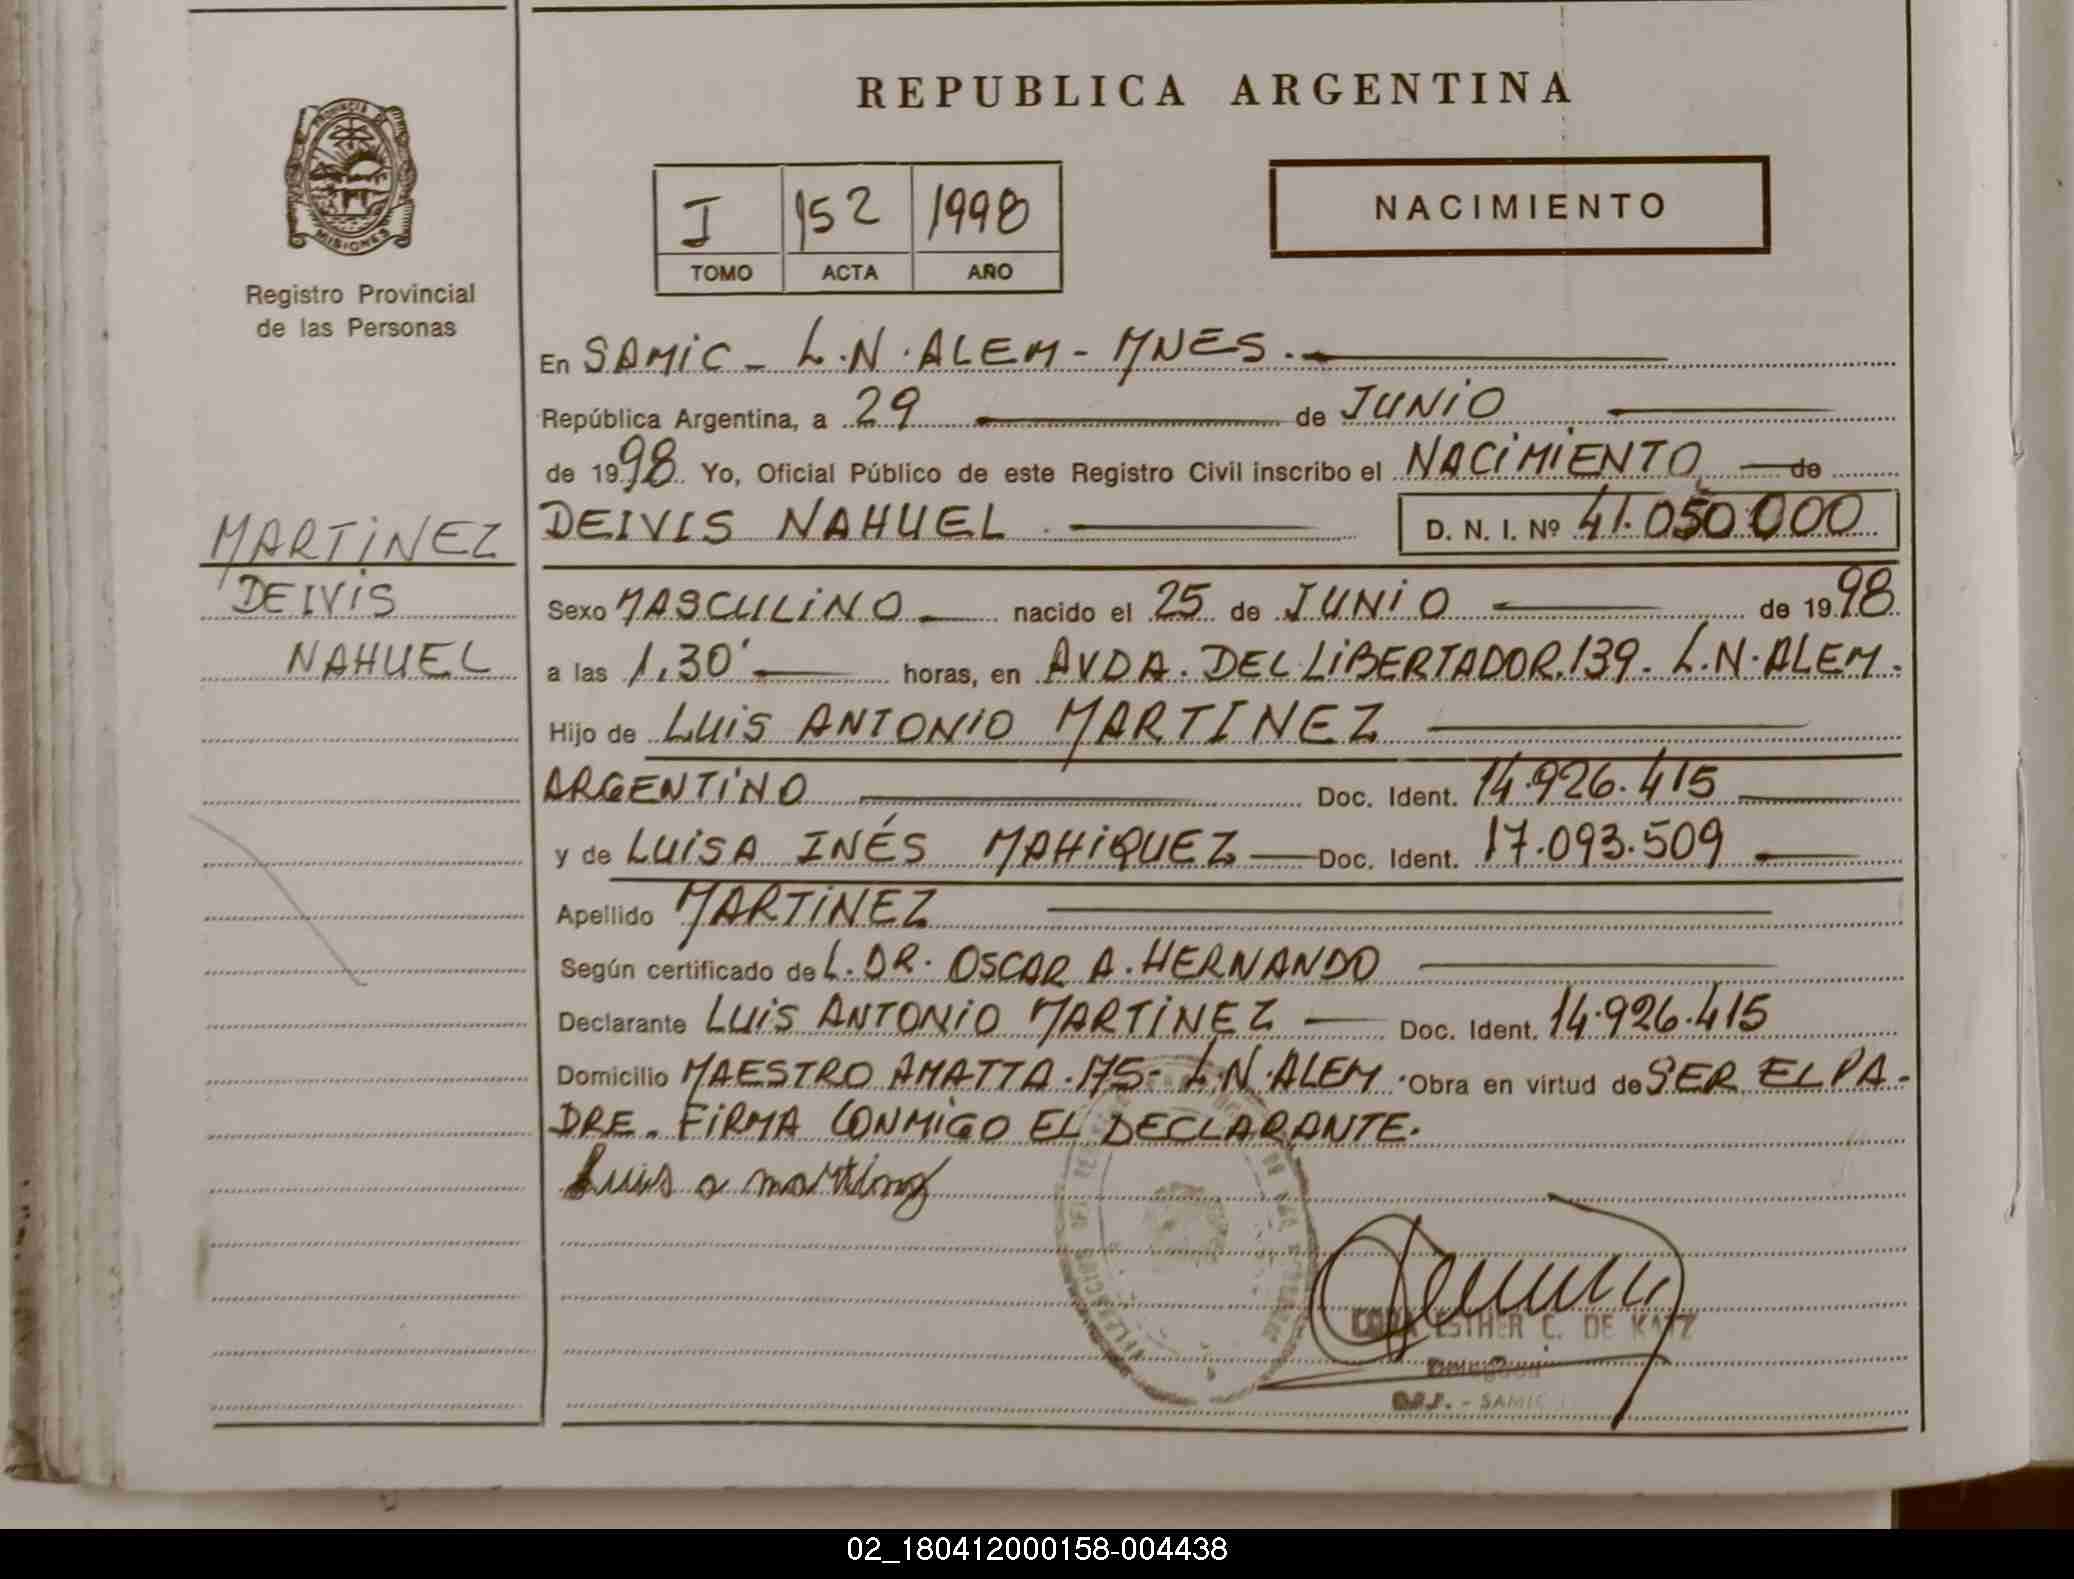 REPUBLICA ARGENTINA
PROVINCIA DE
MISIONES
Registro Provincial
de las Personas
I 152 1998
TOMO ACTA AÑO
NACIMIENTO
En SAMIC - L.N. ALEM - MNES.
República Argentina, a 29 de JUNIO
de 1998 Yo, Oficial Público de este Registro Civil inscribo el NACIMIENTO de
MARTINEZ
DEIVIS
NAHUEL
DEIVIS NAHUEL D. N. I. Nº 41.050.000
Sexo MASCULINO nacido el 25 de JUNIO de 1998
a las 1.30' horas, en AVDA. DEL LIBERTADOR.139- L.N. ALEM.
Hijo de LUIS ANTONIO MARTINEZ
ARGENTINO Doc. Ident. 14.926.415
y de LUISA INÉS MAHIQUEZ Doc. Ident. 17.093.509
Apellido MARTINEZ
Según certificado de L. DR. OSCAR A. HERNANDO
Declarante LUIS ANTONIO MARTINEZ Doc. Ident. 14.926.415
Domicilio MAESTRO AMATTA.175- L.N. ALEM. Obra en virtud de SER EL PA-
DRE. FIRMA CONMIGO EL DECLARANTE.
Luis a martinez
ESTHER C. DE KATZ
Delegada
SAMIC
02_180412000158-004438